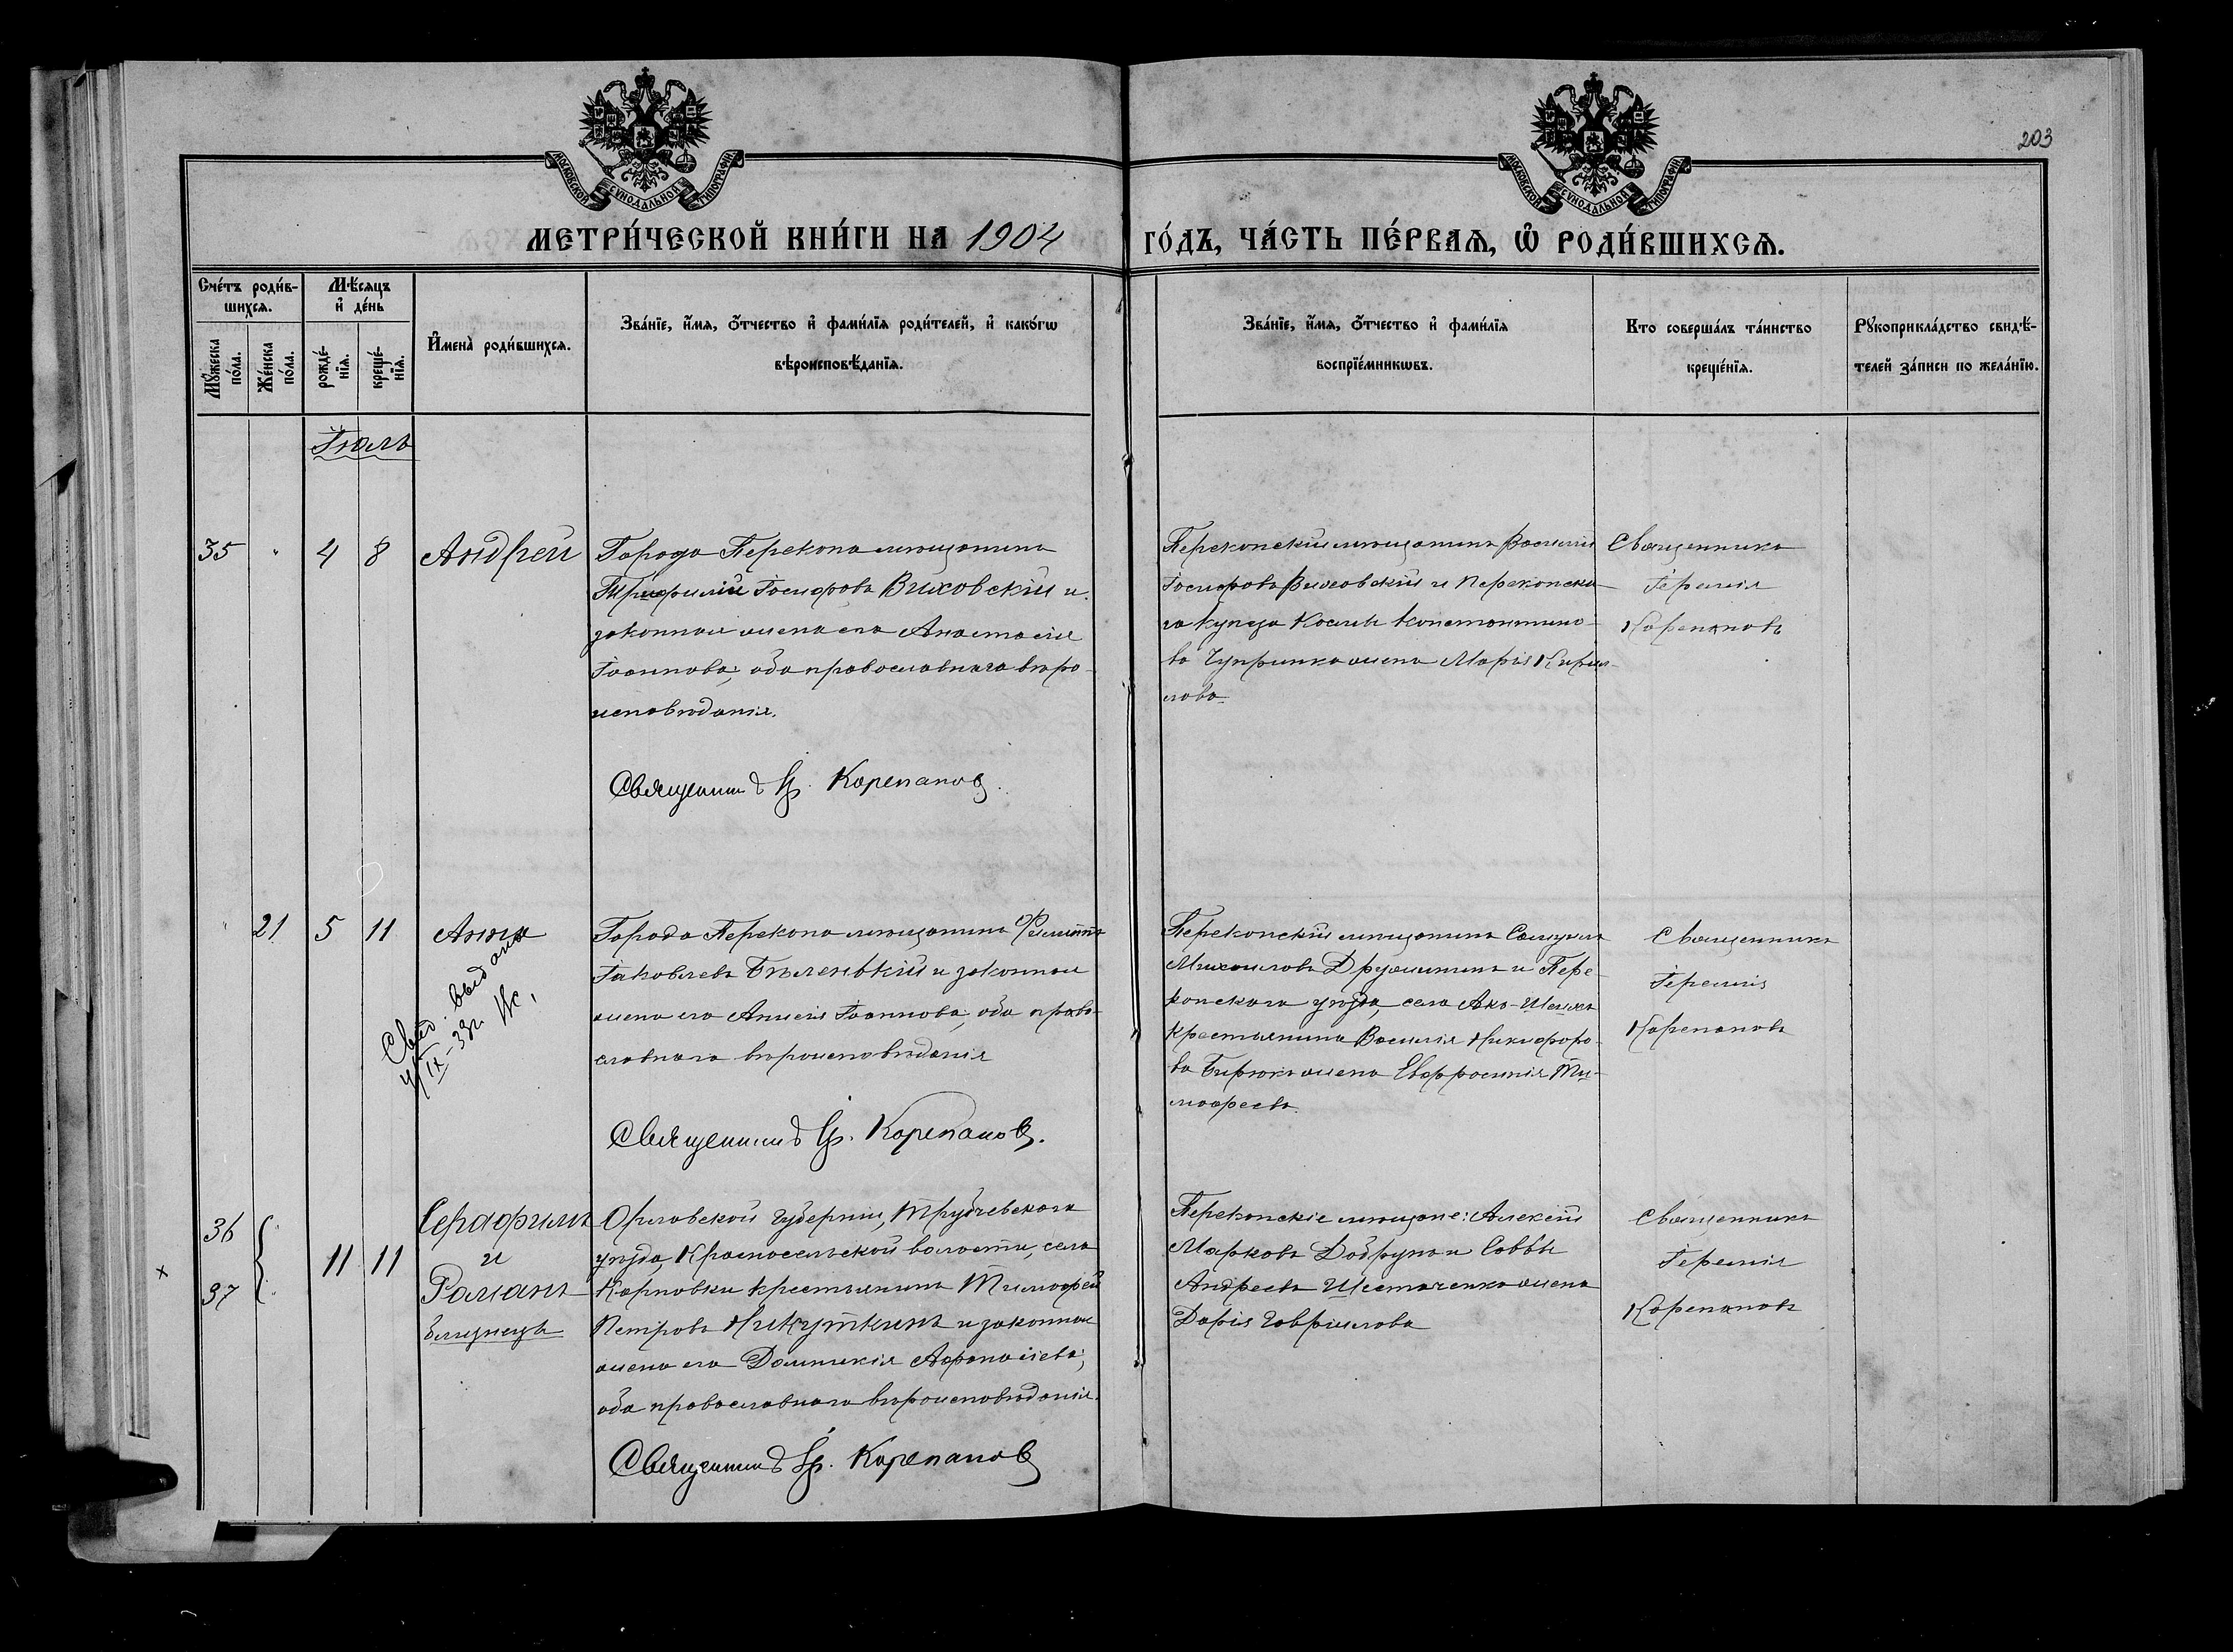 203
МОСКОВСКОЙ СѴНОДАЛЬНОЙ ТИПОГРАФІИ
МОСКОВСКОЙ СѴНОДАЛЬНОЙ ТИПОГРАФІИ
МЕТРИ́ЧЕСКОЙ КНИ́ГИ НА 1904 ГО́ДЪ, ЧА́СТЬ ПЕ́РВАѦ, Ѽ РОДИ́ВШИХСѦ.
Сче́тъ роди́в-
шихсѧ.
Мꙋ́жеска
по́ла.
Же́нска
по́ла.
Мѣ́сяцъ
и҆ де́нь
рожде́-
нїѧ.
креще́-
нїѧ.
И҆мена̀ роди́вшихсѧ.
Зва́нїе, и҆́мѧ, ѻ҆́тчество и҆ фами́лїѧ роди́телей, и҆ како́гѡ
вѣроисповѣ́данїѧ.
Зва́нїе, и҆́мѧ, ѻ҆́тчество и҆ фами́лїѧ
воспрїе́мникѡвъ.
Кто соверша́лъ та́инство
креще́нїѧ.
Рꙋкоприкла́дство свидѣ́-
телей за́писи по жела́нїю.
Іюль
35 " 4 8 Андрей
Города Перекопа мѣщанинъ
Трифилій Іосифовъ Виховскій и
законная жена его Анастасія
Іоаннова, оба православнаго вѣро-
исповѣданія.
Священникъ Іер. Корепановъ.
Перекопскій мѣщанинъ Василій
Іосифовъ Виховскій и Перекопска-
го купца Космы Константино-
ва Чупринка жена Марія Кирил-
лова
Священникъ
Іеремія
Корепановъ
" 21 5 11 Анна
Свид. выдано
4/IX-33г.
Города Перекопа мѣщанинъ Филиппъ
Іаковлевъ Бѣленькій и законная
жена его Анисія Іоаннова, оба право-
славнаго вѣроисповѣданія
Священникъ Іер. Корепановъ.
Перекопскій мѣщанинъ Самуилъ
Михаиловъ Дружининъ и Пере-
копскаго уѣзда, села Акъ-Шеихъ
крестьянина Василія Никифоро-
ва Бирюкъ жена Евфросинія Ти-
моѳеева.
Священникъ
Іеремія
Корепановъ
36
37
11 11
Серафимъ
и
Романъ
близнецы
Орловской губерніи, Трубчевскаго
уѣзда, Красносельской волости, села
Карповки крестьянинъ Тимоѳей
Петровъ Никуткинъ и законная
жена его Домникія Аѳанасіева,
оба православнаго вѣроисповѣданія.
Священникъ Іер. Корепановъ
Перекопскіе мѣщане: Алексій
Марковъ Добрунъ и Саввы
Андреева Шестаченко жена
Дарія Гавріилова
Священникъ
Іеремія
Корепановъ